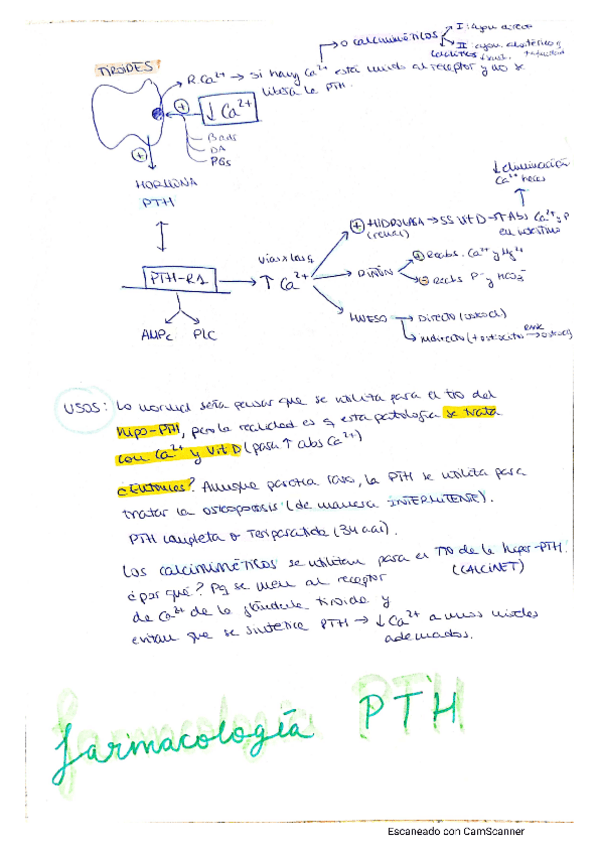 → o calcimiméticos
I: agon. directo
II: agon. alostérico
TIROIDES?
→ R. Ca²⁺ → si hay Ca²⁺ está unido al receptor y no se
libera la PTH.
⊕
↓ Ca²⁺
DA
PGs
⊕
HORMONA
PTH
PTH-R1
AMPc PLC
↑ Ca²⁺
↓ eliminación
Ca²⁺ heces
⊕ HIDROLASA → SS Vit D → ↑ Abs Ca²⁺ y P
(renal)
en intestino
RIÑÓN
⊕ Reabs. Ca²⁺ y Mg²⁺
⊖ Reabs P⁻ y HCO₃⁻
HUESO → Directo (osteocl)
Indirecto (+ osteocito
USOS: Lo normal sería pensar que se utiliza para el tto del
hipo-PTH, pero la realidad es q esta patología se trata
con Ca²⁺ y Vit D (para ↑ abs Ca²⁺)
¿Entonces? Aunque parezca raro, la PTH se utiliza para
tratar la osteoporosis (de manera INTERMITENTE).
PTH completa o Teriparatida (34 aa).
Los calcimiméticos se utilizan para el TTO de la hiper-PTH.
(CALCINET)
¿por qué? Pq se unen al receptor
de Ca²⁺ de la glándula tiroide y
evitan que se sintetice PTH → ↓ Ca²⁺ a unos niveles
adecuados.
farmacología PTH
Escaneado con CamScanner